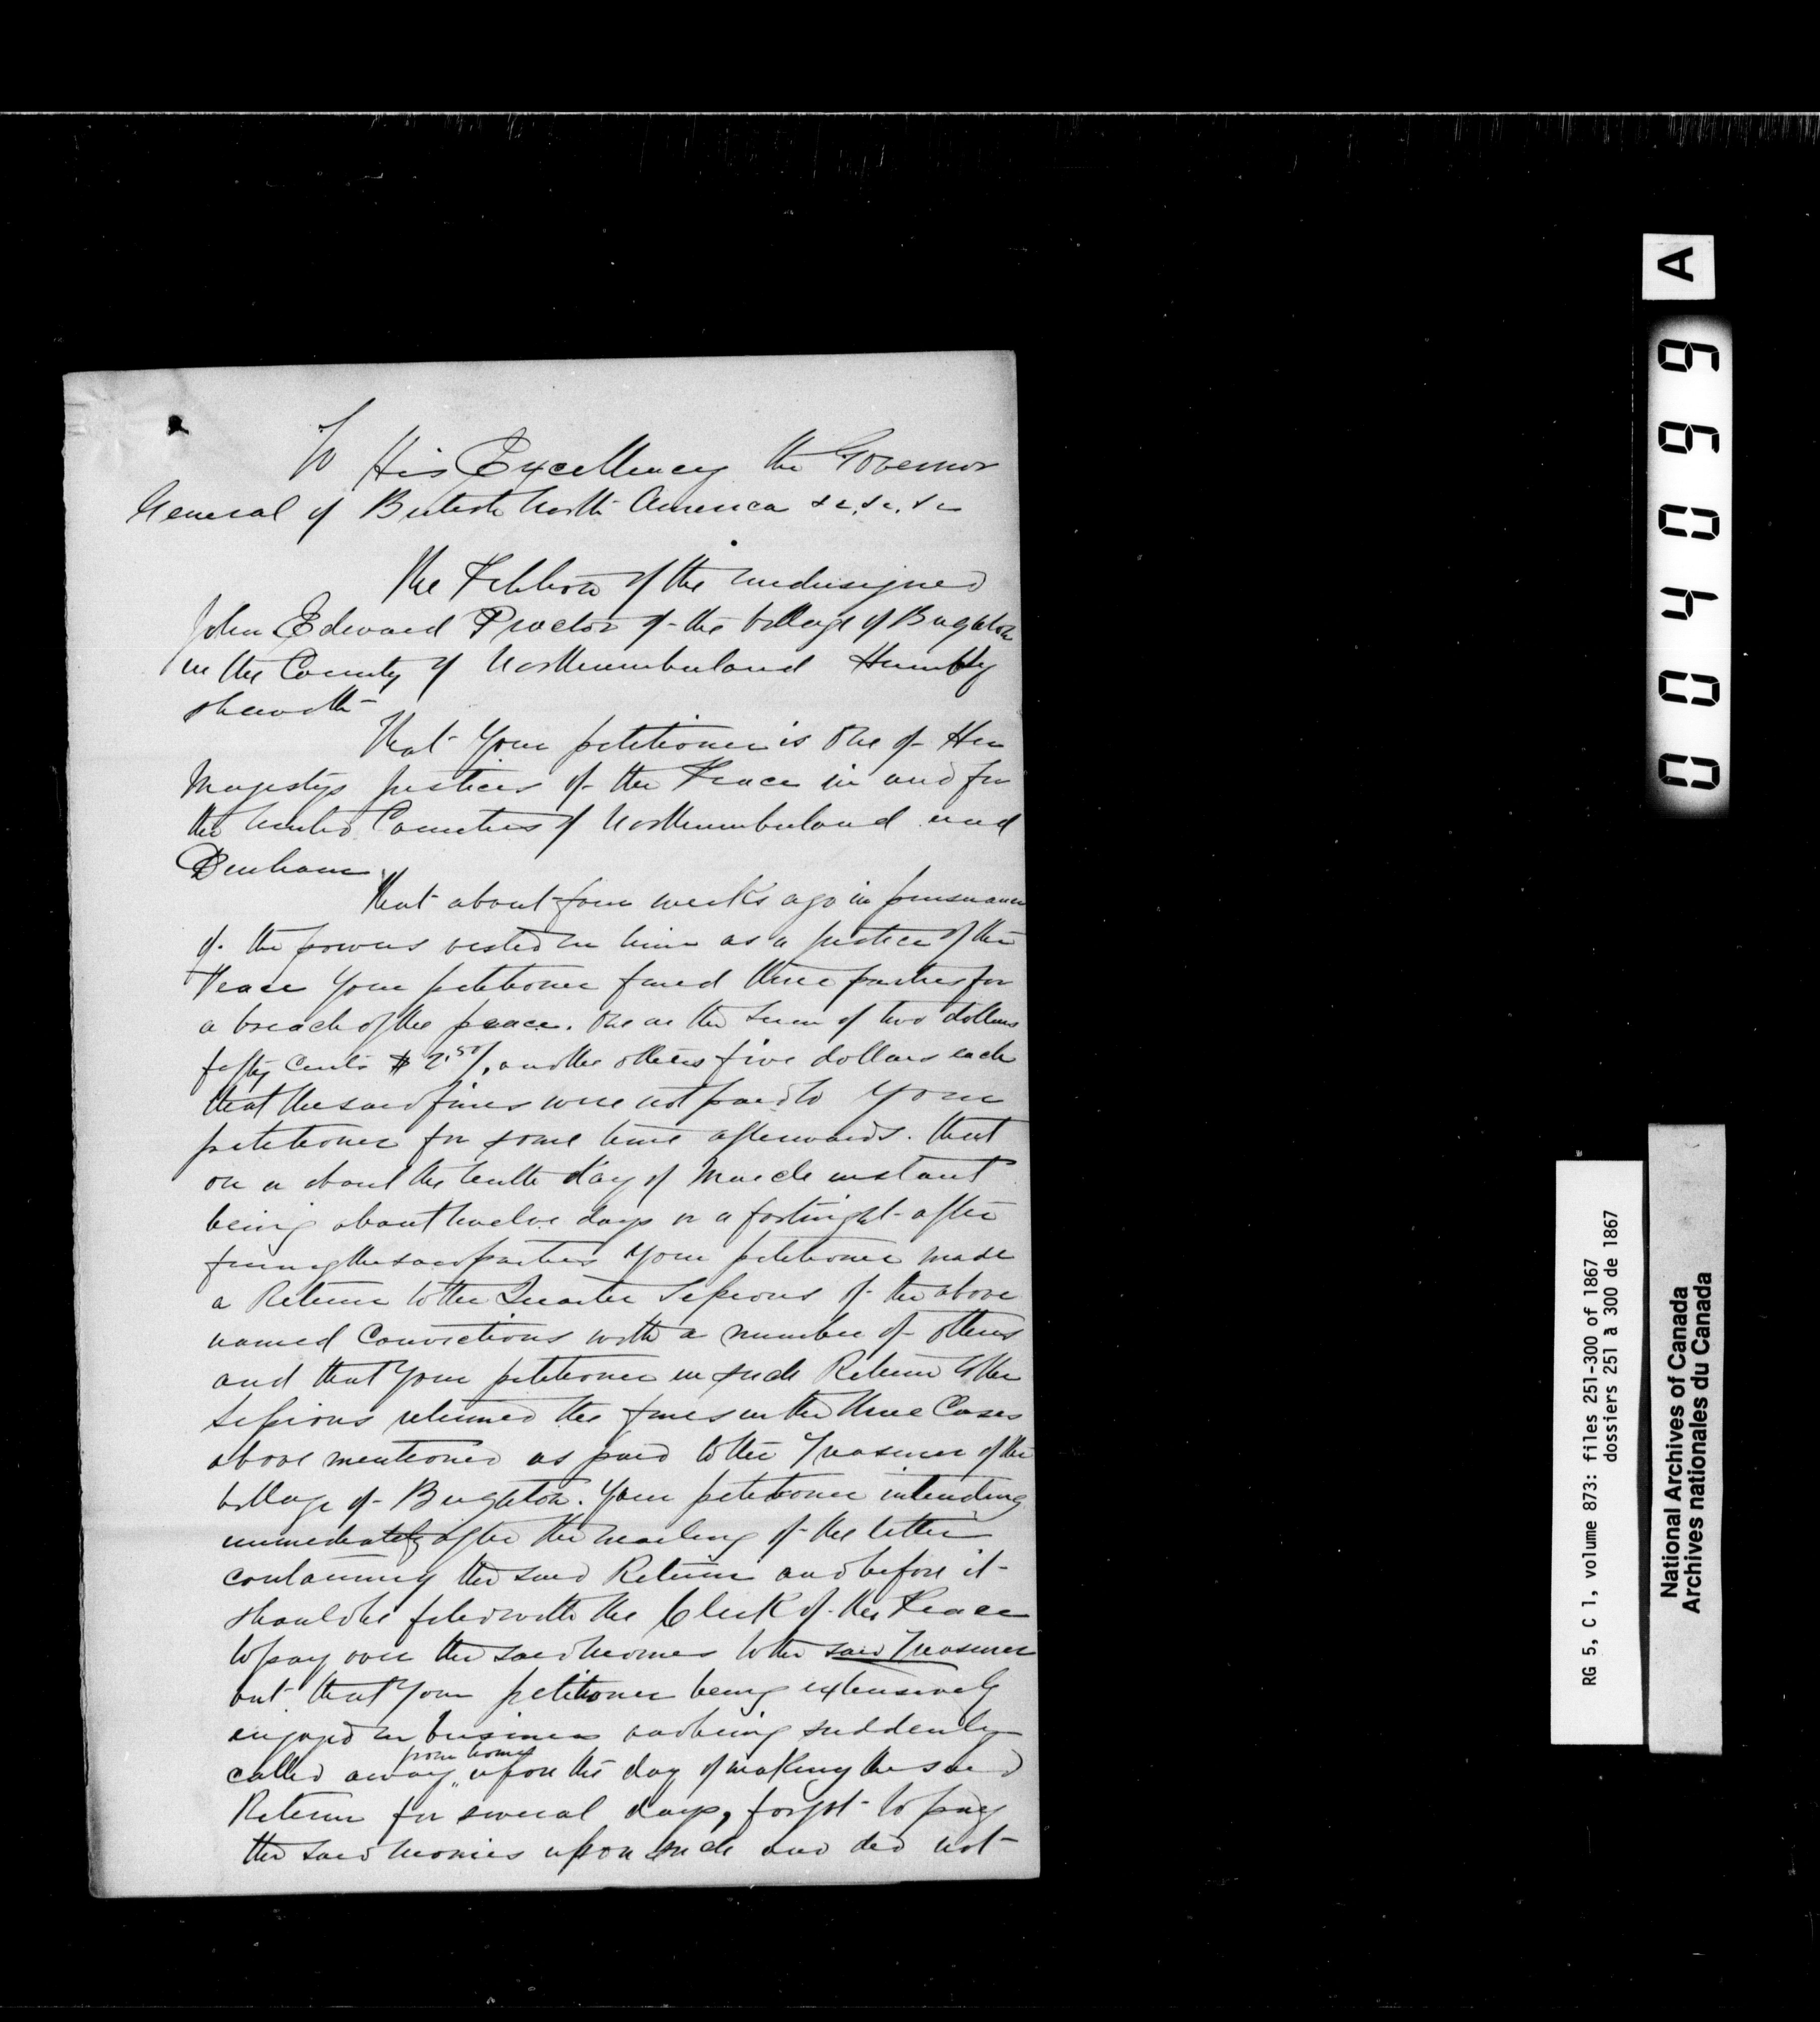 To His Excellency the Governor
General of British North America &c. &c. &c
The Petition of the undersigned
John Edward Proctor of the Village of Brighton
in the County of Northumberland Humbly
sheweth
That Your petitioner is One of Her
Majestys Justices of the Peace in and for
the United Counties of Northumberland and
Durham
That about four weeks ago in pursuance
of the powers vested in him as a Justice of the
Peace Your petitioner fined three parties for
a breach of the peace. One in the Sum of two dollars
fifty Cents $2.50/, and the others five dollars each
that the said fines were not paid to Your
petitioner for some time afterwards. that
on or about the tenth day of March instant
being about twelve days or a fortnight after
fining the said parties Your petitioner made
a Return to the Quarter Sessions of the above
named Convictions with a number of others
and that Your petitioner in such Return to the
Sessions returned the fines in the three Cases
above mentioned as paid to the Treasurer of the
Village of Brighton. Your petitioner intending
immediately after the mailing of the letter
containing the said Return and before it
should be filed with the Clerk of the Peace
to pay over the said monies to the said Treasurer
but that Your petitioner being extensively
engaged in business and being suddenly
from home
called away upon the day of making the said
Return for several days, forgot to pay
the said monies upon such and did not
A
0040699
RG 5, C 1, volume 873: files 251-300 of 1867
dossiers 251 à 300 de 1867
National Archives of Canada
Archives nationales du Canada